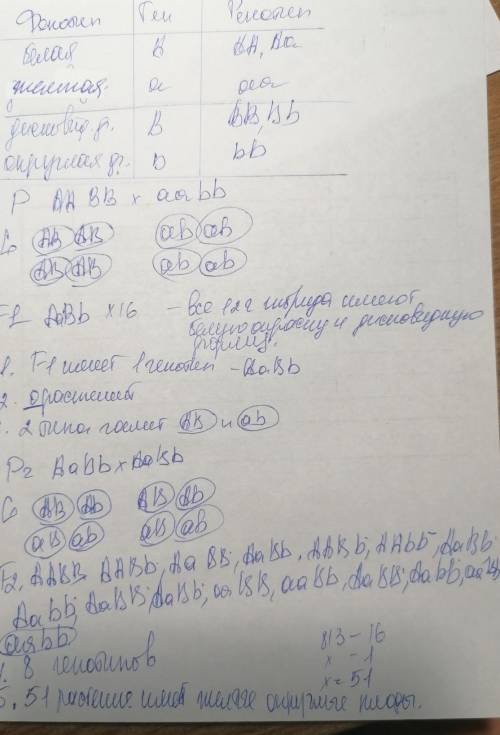 Фенотип Ген Генотип
белая A AA, Aa
желтая a aa
дисковид. ф. B BB, Bb
округлая ф. b bb
P AABB x aabb
G AB AB ab ab
AB AB ab ab
F1 AaBb x16 - все 12 гибрида имеют
белую окраску и дисковидную
форму.
1. F-1 имеет 1 генотип - AaBb
2. 0 растений
2 типа гамет AB и ab
P2 AaBb x AaBb
G AB Ab AB Ab
aB ab aB ab
F2, AABB, AABb, AaBB, AaBb, AABb, AAbb, AaBb,
Aabb, AaBB, AaBb, aaBB, aaBb, AaBb, Aabb, aaBb,
aabb.
813 - 16
x - 1
8 генотипов
x = 51
5. 51 растение имеет желтые округлые плоды.